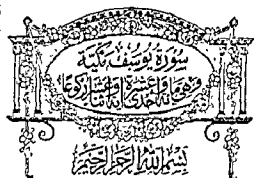 سورة يوسف مكية
وهي مائة واحدى عشرة اية واثنا عشر ركوعا
بسم الله الرحمن الرحيم